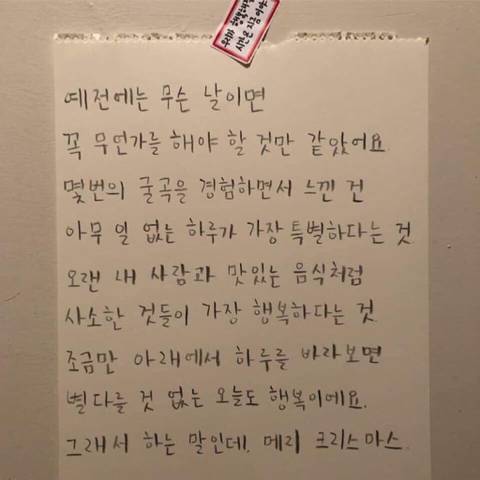 우리가 행복해질
시간은 지금 이야
예전에는 무슨 날이면
꼭 무언가를 해야 할 것만 같았어요.
몇번의 굴곡을 경험하면서 느낀 건
아무 일 없는 하루가 가장 특별하다는 것.
오랜 내 사람과 맛있는 음식처럼
사소한 것들이 가장 행복하다는 것
조금만 아래에서 하루를 바라보면
별다를 것 없는 오늘도 행복이에요.
그래서 하는 말인데, 메리 크리스마스.